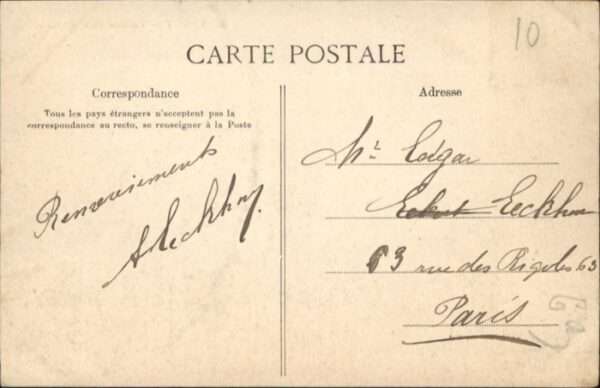 10
CARTE POSTALE
Correspondance
Tous les pays étrangers n'acceptent pas la
correspondance au recto, se renseigner à la Poste
Adresse
Mr Edgar
Eeckhou
63 rue des Rigoles 63
Paris